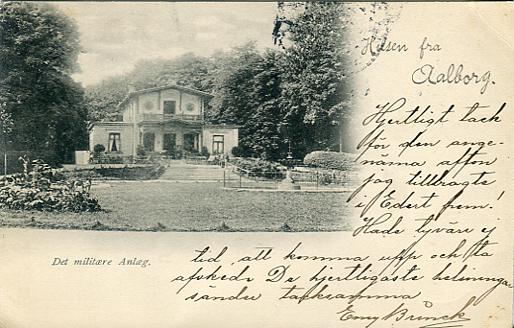 Hilsen fra
Aalborg.
Hjertligt tack
för den ange-
näma afton
jag tillbragte
i Edert hem!
Hade tyvärr ej
tid att komma upp och ta
afsked. De hjertligaste helsningar
sänder tacksamma
Emy Brinck
Det militære Anlæg.